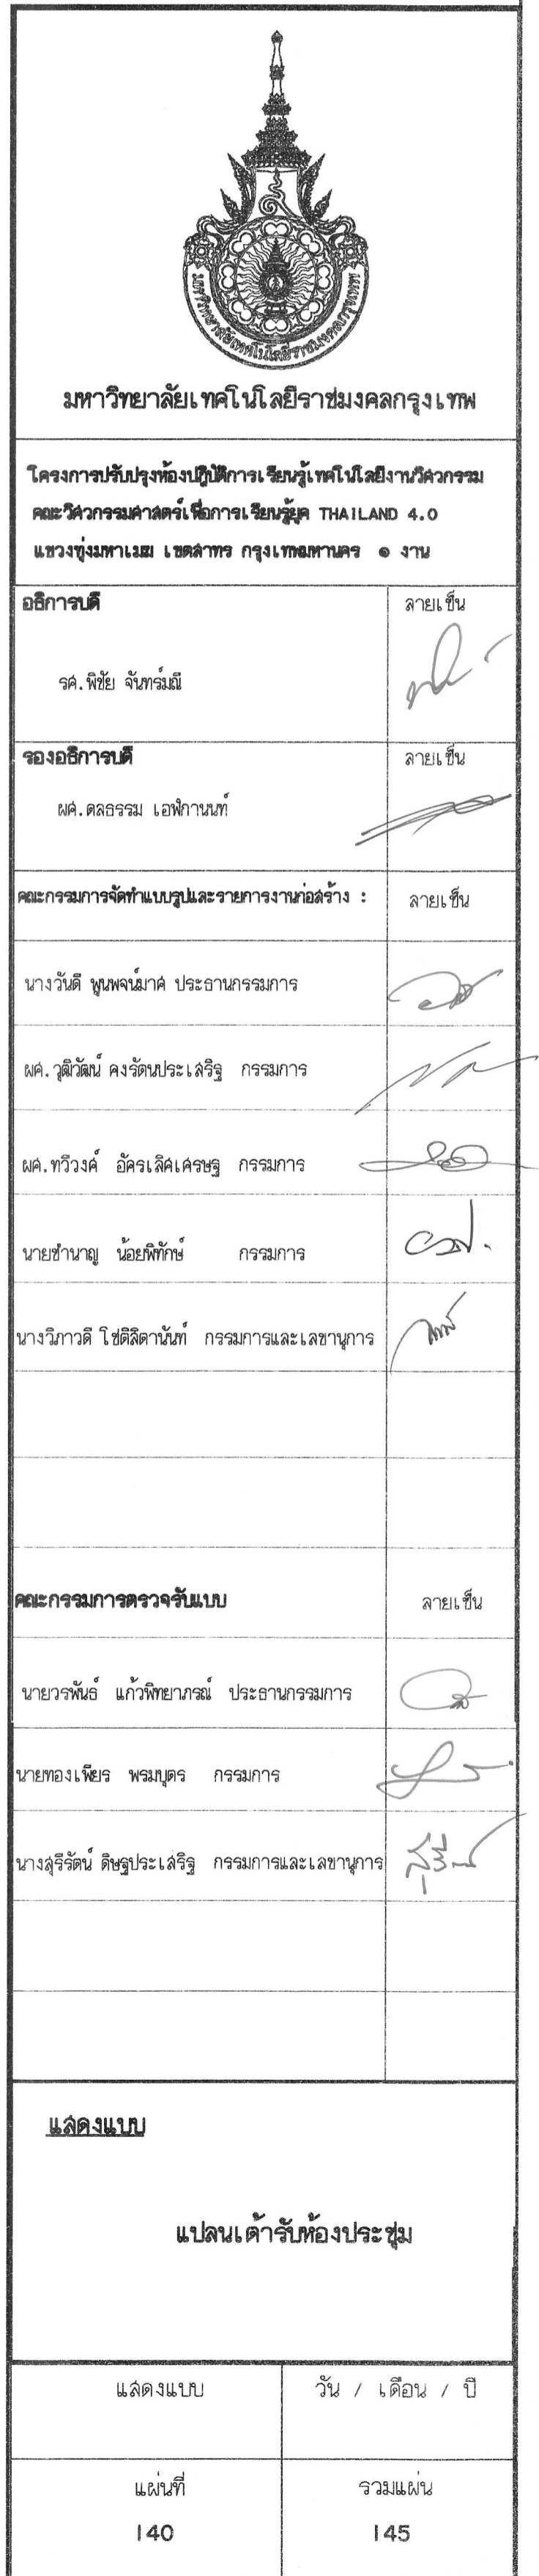 มหาวิทยาลัยเทคโนโลยีราชมงคลกรุงเทพ
มหาวิทยาลัยเทคโนโลยีราชมงคลกรุงเทพ
โครงการปรับปรุงห้องปฏิบัติการเรียนรู้เทคโนโลยีงานวิศวกรรม
คณะวิศวกรรมศาสตร์เพื่อการเรียนรู้ยุค THAILAND 4.0
แขวงทุ่งมหาเมฆ เขตสาทร กรุงเทพมหานคร ๑ งาน
อธิการบดี ลายเซ็น
รศ.พิชัย จันทร์มณี
รองอธิการบดี ลายเซ็น
ผศ.ดลธรรม เอฬกานนท์
คณะกรรมการจัดทำแบบรูปและรายการงานก่อสร้าง : ลายเซ็น
นางวันดี พูนพจน์มาศ ประธานกรรมการ
ผศ.วุฒิวัฒน์ คงรัตนประเสริฐ กรรมการ
ผศ.ทวีวงศ์ อัครเลิศเศรษฐ กรรมการ
นายชำนาญ น้อยพิทักษ์ กรรมการ
นางวิภาวดี โชติลิตานันท์ กรรมการและเลขานุการ
คณะกรรมการตรวจรับแบบ ลายเซ็น
นายวรพันธ์ แก้วพิทยาภรณ์ ประธานกรรมการ
นายทองเพียร พรมบุตร กรรมการ
นางสุรีรัตน์ ดิษฐประเสริฐ กรรมการและเลขานุการ
สุรีรัตน์
แสดงแบบ
แปลนเต้ารับห้องประชุม
แสดงแบบ วัน / เดือน / ปี
แผ่นที่ รวมแผ่น
140 145